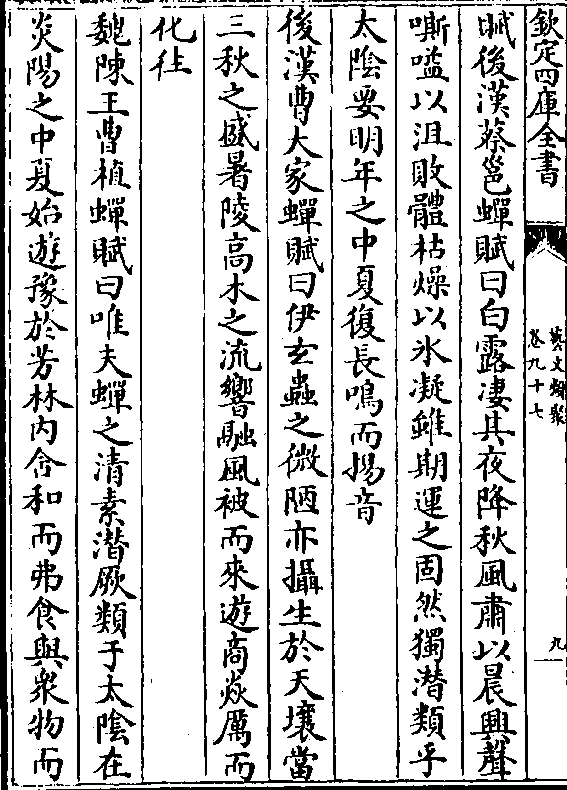 欽定四庫全書
藝文類聚
卷九十七
九
賦後漢蔡邕蟬賦曰白露凄其夜降秋風肅以晨興聲
嘶嗌以沮敗體枯燥以氷凝雖期運之固然獨潛類乎
太陰要明年之中夏復長鳴而揚音
後漢曹大家蟬賦曰伊𤣥蟲之微陋亦攝生於天壤當
三秋之盛暑陵高木之流響融風被而來遊商焱厲而
化徃
魏陳王曹植蟬賦曰唯夫蟬之清素潛厥類于太陰在
炎陽之中夏始遊豫於芳林内含和而弗食與衆物而